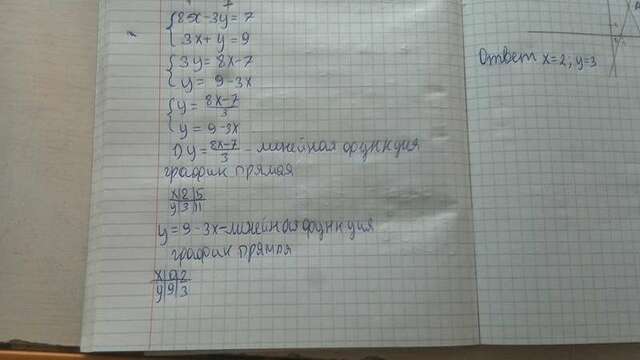 8x-3y=7
3x+y=9
3y=8x-7
y=9-3x
y=8x-7/3
y=9-3x
1) y=8x-7/3 - линейная функция
график прямая
x|2|5
y|3|11
y=9-3x-линейная функция
график прямая
x|0|2
y|9|3
Ответ x=2, y=3